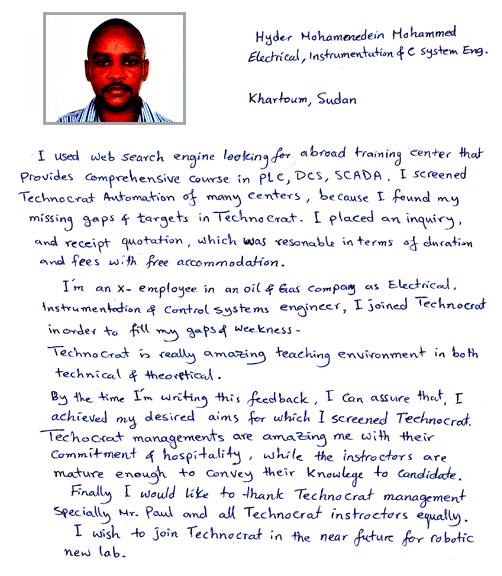 Hyder Mohamenedein Mohammed
Electrical, Instrumentation & C System Eng.
Khartoum, Sudan
I used web search engine looking for abroad training center that
Provides comprehensive course in PLC, DCS, SCADA. I screened
Technocrat Automation of many centers, because I found my
missing gaps & targets in Technocrat. I placed an inquiry,
and receipt quotation, which was resonable in terms of duration
and fees with free accommodation.
I'm an x- employee in an oil & Gas company as Electrical,
Instrumentation & Control systems engineer, I joined Technocrat
in order to fill my gaps & weekness-
Technocrat is really amazing teaching environment in both
technical & theoretical.
By the time I'm writing this feedback, I can assure that, I
achieved my desired aims for which I screened Technocrat.
Techocrat managements are amazing me with their
commitment & hospitality, while the instroctors are
mature enough to convey their Knowlege to candidate.
Finally I would like to thank Technocrat management
specially Mr. Paul and all Technocrat instroctors equally.
I wish to join Technocrat in the near future for robotic
new lab.